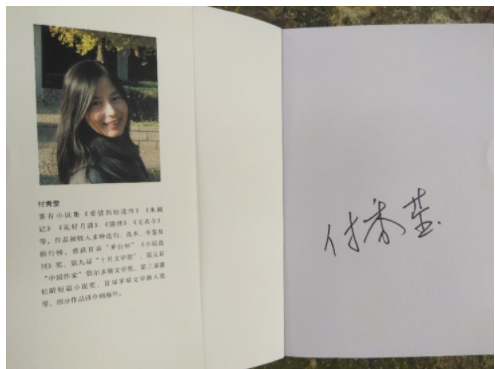 付秀莹
著有小说集《爱情到处流传》《朱颜
记》《花好月圆》《锦绣》《无衣令》
等。作品被收入多种选刊、选本、年鉴及
排行榜。曾获首届“茅台杯”《小说选
刊》奖、第九届“十月文学奖”、第五届
“中国作家”鄂尔多斯文学奖、第三届蒲
松龄短篇小说奖、首届茅盾文学新人奖
等。部分作品译介到海外。
付秀莹